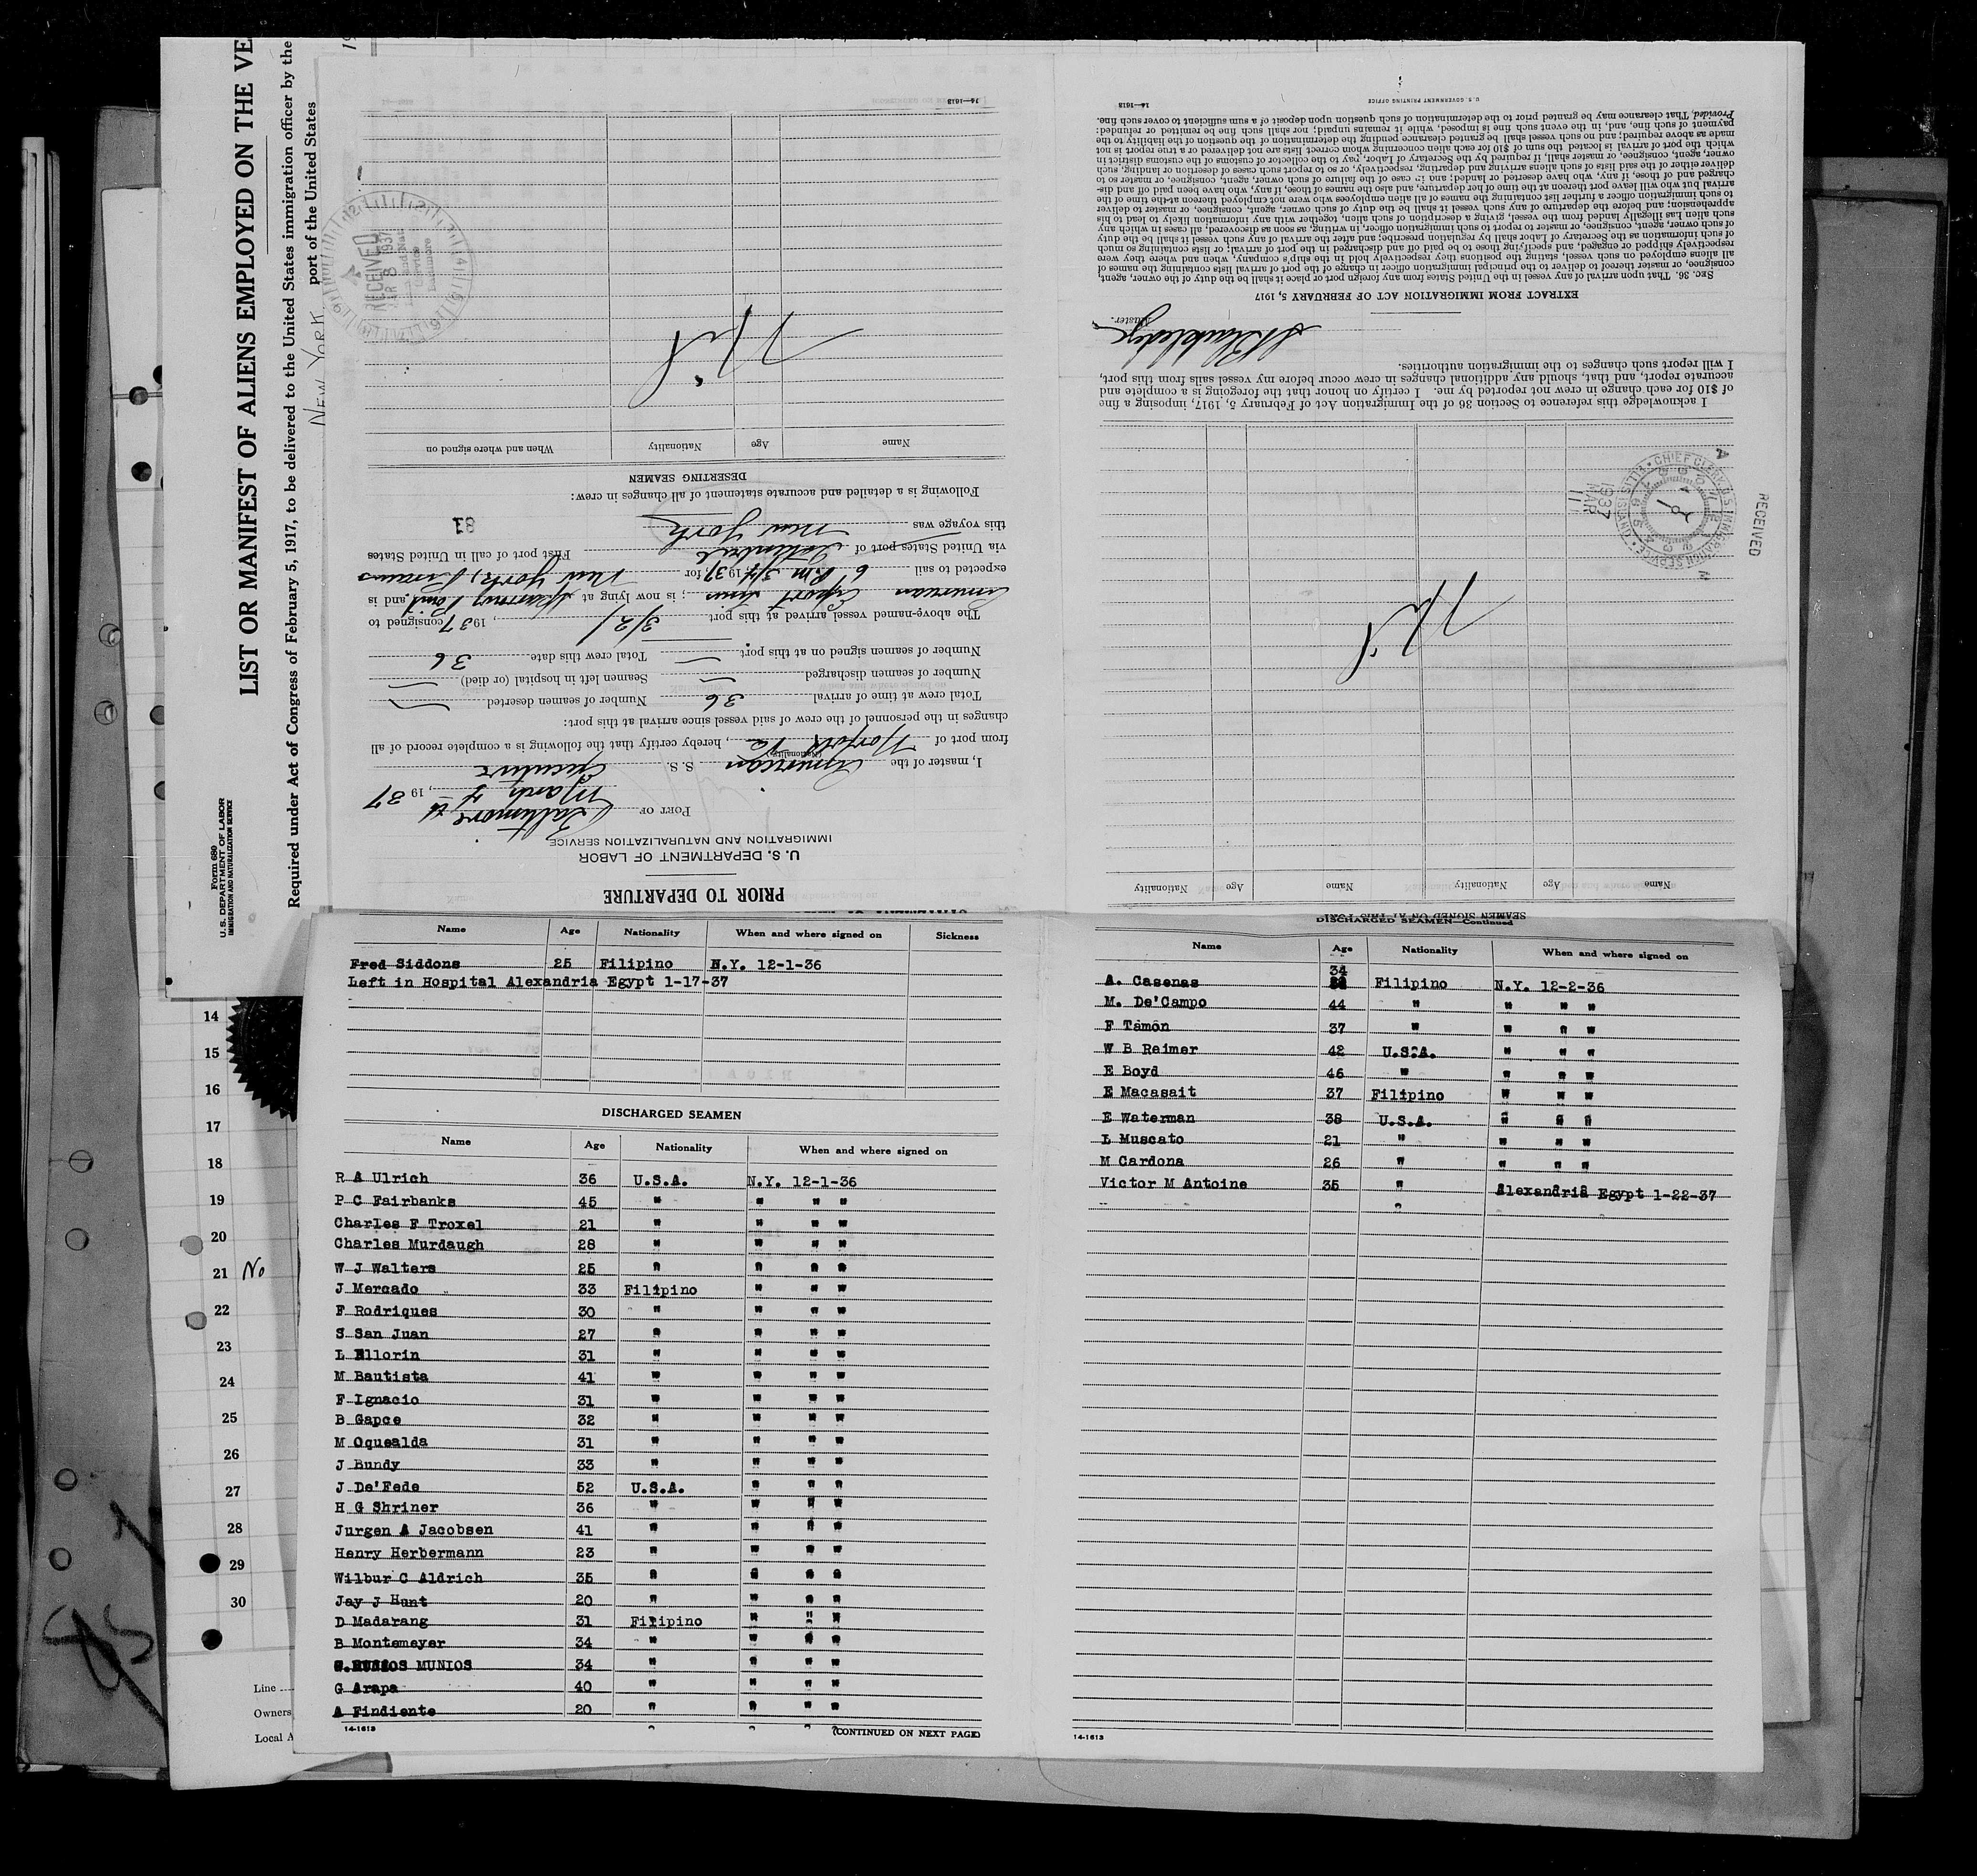 LIST OR MANIFEST OF ALIENS EMPLOYED ON THE VE
Required under Act of Congress of February 5, 1917, to be delivered to the United States immigration officer by the
port of the United States
NEW YORK
Form 680
U.S. DEPARTMENT OF LABOR
IMMIGRATION AND NATURALIZATION SERVICE
PRIOR TO DEPARTURE
U. S. DEPARTMENT OF LABOR
IMMIGRATION AND NATURALIZATION SERVICE
PORT OF Baltimore
March 4th, 1937
I, master of the American S. S. Executive
(Nationality)
from port of Norfolk Va, hereby certify that the following is a complete record of all
changes in the personnel of the crew of said vessel since arrival at this port:
Total crew at time of arrival 36 Number of seamen deserted —
Number of seamen discharged — Seamen left in hospital (or died) —
Number of seamen signed on at this port — Total crew this date 36
The above-named vessel arrived at this port 3/2/, 1937 consigned to
American Export Lines; is now lying at and is
expected to sail 6 P.M. 3/4, 1937 for New York,
via United States port of First port of call in United States
this voyage was New York 81
Following is a detailed and accurate statement of all changes in crew:
DESERTING SEAMEN
Name Age Nationality When and where signed on
Nil
RECEIVED
MAR 8 1937
Baltimore
14—1613
SEAMEN SIGNED ON AT THIS PORT
Name Age Nationality Name Age Nationality
Nil
RECEIVED
CHIEF CLERK U.S. IMMIGRATION SERVICE
1937
MAR
11
I acknowledge this reference to Section 36 of the Immigration Act of February 5, 1917, imposing a fine
of $10 for each change in crew not reported by me. I certify on honor that the foregoing is a complete and
accurate report, and that, should any additional changes in crew occur before my vessel sails from this port,
I will report such changes to the immigration authorities.
Master.
EXTRACT FROM IMMIGRATION ACT OF FEBRUARY 5, 1917
SEC. 36. That upon arrival of any vessel in the United States from any foreign port or place it shall be the duty of the owner, agent,
consignee, or master thereof to deliver to the principal immigration officer in charge of the port of arrival lists containing the names of
all aliens employed on such vessel, stating the positions they respectively hold in the ship's company, when and where they were
respectively shipped or engaged, and specifying those to be paid off and discharged in the port of arrival; or lists containing so much
of such information as the Secretary of Labor shall by regulation prescribe; and after the arrival of any such vessel it shall be the duty
of such owner, agent, consignee, or master to report to such immigration officer, in writing, as soon as discovered, all cases in which any
such alien has illegally landed from the vessel, giving a description of such alien, together with any information likely to lead to his
apprehension; and before the departure of any such vessel it shall be the duty of such owner, agent, consignee, or master to deliver
to such immigration officer a further list containing the names of all alien employees who were not employed thereon at the time of the
arrival but who will leave port thereon at the time of her departure, and also the names of those, if any, who have been paid off and dis-
charged and of those, if any, who have deserted or landed; and in case of the failure of such owner, agent, consignee, or master so to
deliver either of the said lists of such aliens arriving and departing, respectively, or so to report such cases of desertion or landing, such
owner, agent, consignee, or master, shall, if required by the Secretary of Labor, pay to the collector of customs of the customs district in
which the port of arrival is located the sum of $10 for each alien concerning whom correct lists are not delivered or a true report is not
made as above required; and no such vessel shall be granted clearance pending the determination of the question of the liability to the
payment of such fine, and, in the event such fine is imposed, while it remains unpaid; nor shall such fine be remitted or refunded:
Provided, That clearance may be granted prior to the determination of such question upon deposit of a sum sufficient to cover such fine.
U. S. GOVERNMENT PRINTING OFFICE 14—1613
Name Age Nationality When and where signed on Sickness
Fred Siddons 25 Filipino N.Y. 12-1-36
Left in Hospital Alexandria Egypt 1-17-37
DISCHARGED SEAMEN
Name Age Nationality When and where signed on
R A Ulrich 36 U.S.A. N.Y. 12-1-36
P C Fairbanks 45 " " " "
Charles F Troxel 21 " " " "
Charles Murdaugh 28 " " " "
W J Walters 25 " " " "
J Mercado 33 Filipino " " "
F Rodriques 30 " " " "
S San Juan 27 " " " "
L Ellorin 31 " " " "
M Bautista 41 " " " "
F Ignacio 31 " " " "
B Gapce 32 " " " "
M Oquealda 31 " " " "
J Bundy 33 " " " "
J De'Fede 52 U.S.A. " " "
H G Shriner 36 " " " "
Jurgen A Jacobsen 41 " " " "
Henry Herbermann 23 " " " "
Wilbur C Aldrich 35 " " " "
Jay J Hunt 20 " " " "
D Madarang 31 Filipino " " "
B Montemeyer 34 " " " "
MUNIOS 34 " " " "
G Arapa 40 " " " "
A Findiente 20 " " " "
14-1613 (CONTINUED ON NEXT PAGE)
DISCHARGED SEAMEN—Continued
Name Age Nationality When and where signed on
A. Casenas 34 Filipino N.Y. 12-2-36
M. De'Campo 44 " " " "
F Tamon 37 " " " "
W B Reimer 42 U.S.A. " " "
E Boyd 46 " " " "
E Macasait 37 Filipino " " "
E Waterman 38 U.S.A. " " "
L Muscato 21 " " " "
M Cardona 26 " " " "
Victor M Antoine 35 " Alexandria Egypt 1-22-37
14-1613
14
15
16
17
18
19
20
21 No
22
23
24
25
26
27
28
29
30
Line
Owners
Local A